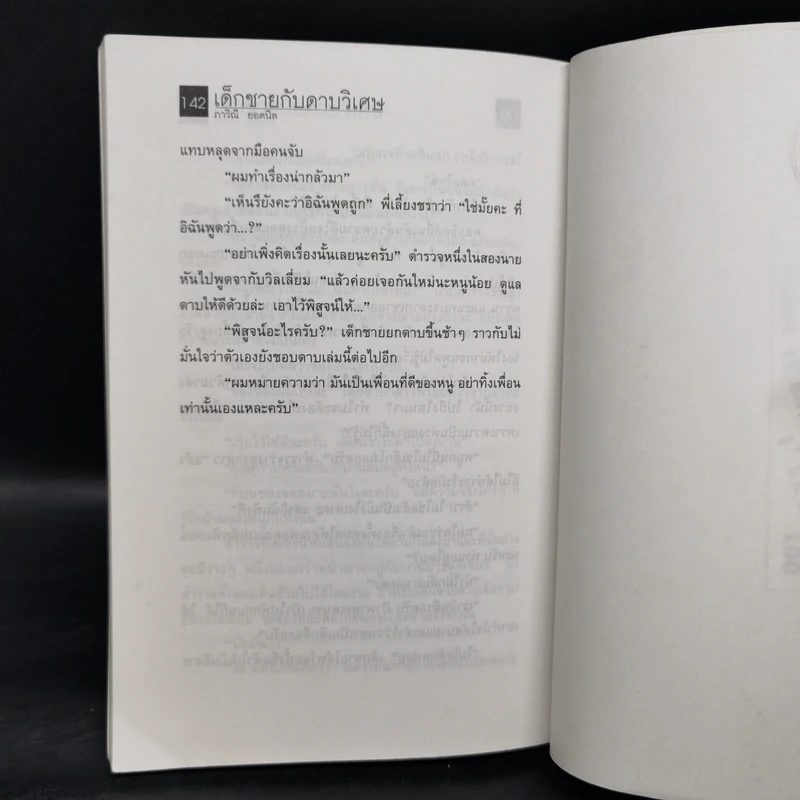 142 เด็กชายกับดาบวิเศษ
ภาวิณี ยอดนิล
แทบหลุดจากมือคนจับ
“ผมทำเรื่องน่ากลัวมา”
“เห็นรึยังคะว่าอิฉันพูดถูก” พี่เลี้ยงชราว่า “ใช่มั๊ยคะ ที่
อิฉันพูดว่า...?”
“อย่าเพิ่งคิดเรื่องนั้นเลยนะครับ” ตำรวจหนึ่งในสองนาย
หันไปพูดจากับวิลเลี่ยม “แล้วค่อยเจอกันใหม่นะหนูน้อย ดูแล
ดาบให้ดีด้วยล่ะ เอาไว้พิสูจน์ให้...”
“พิสูจน์อะไรครับ?” เด็กชายยกดาบขึ้นช้าๆ ราวกับไม่
มั่นใจว่าตัวเองยังชอบดาบเล่มนี้ต่อไปอีก
“ผมหมายความว่า มันเป็นเพื่อนที่ดีของหนู อย่าทิ้งเพื่อน
เท่านั้นเองแหละครับ”